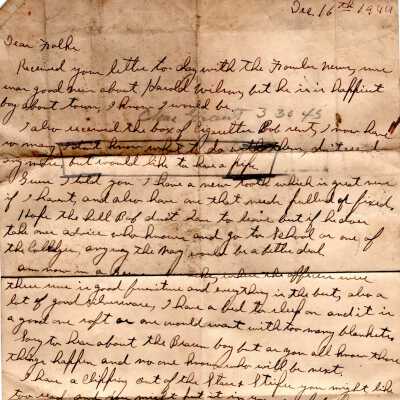 Dec 16th 1944
Dear Folks
Received your letter to day with the Fowler News, sure
was good news about Harold Wilson, bet he is happiest
boy about town, I know I would be.
3 30 45
I also received the box of Cigarettes Bob sent, I now have
so many I don't know what to do with them, don't need
any more but would like to have a pipe
Guess I told you I have a new tooth which is great now
if I haven't, and also have one that needs pulled or fixed.
I hope the hell Bob don't have to leave but if he does
take one advice who knows and go to School or one of
the Colleges, anyway the Navy would be a better deal
am now in a where the officers were
there sure is good furniture and everything is the best, also a
lot of good silverware, I have a bed to sleep on and it is
a good one soft or one would want with to many blankets.
Sorry to hear about the boy but as you all know those
things happen and no one knows who will be next.
I have a clipping out of the Stars & Stripes you might like
to read and